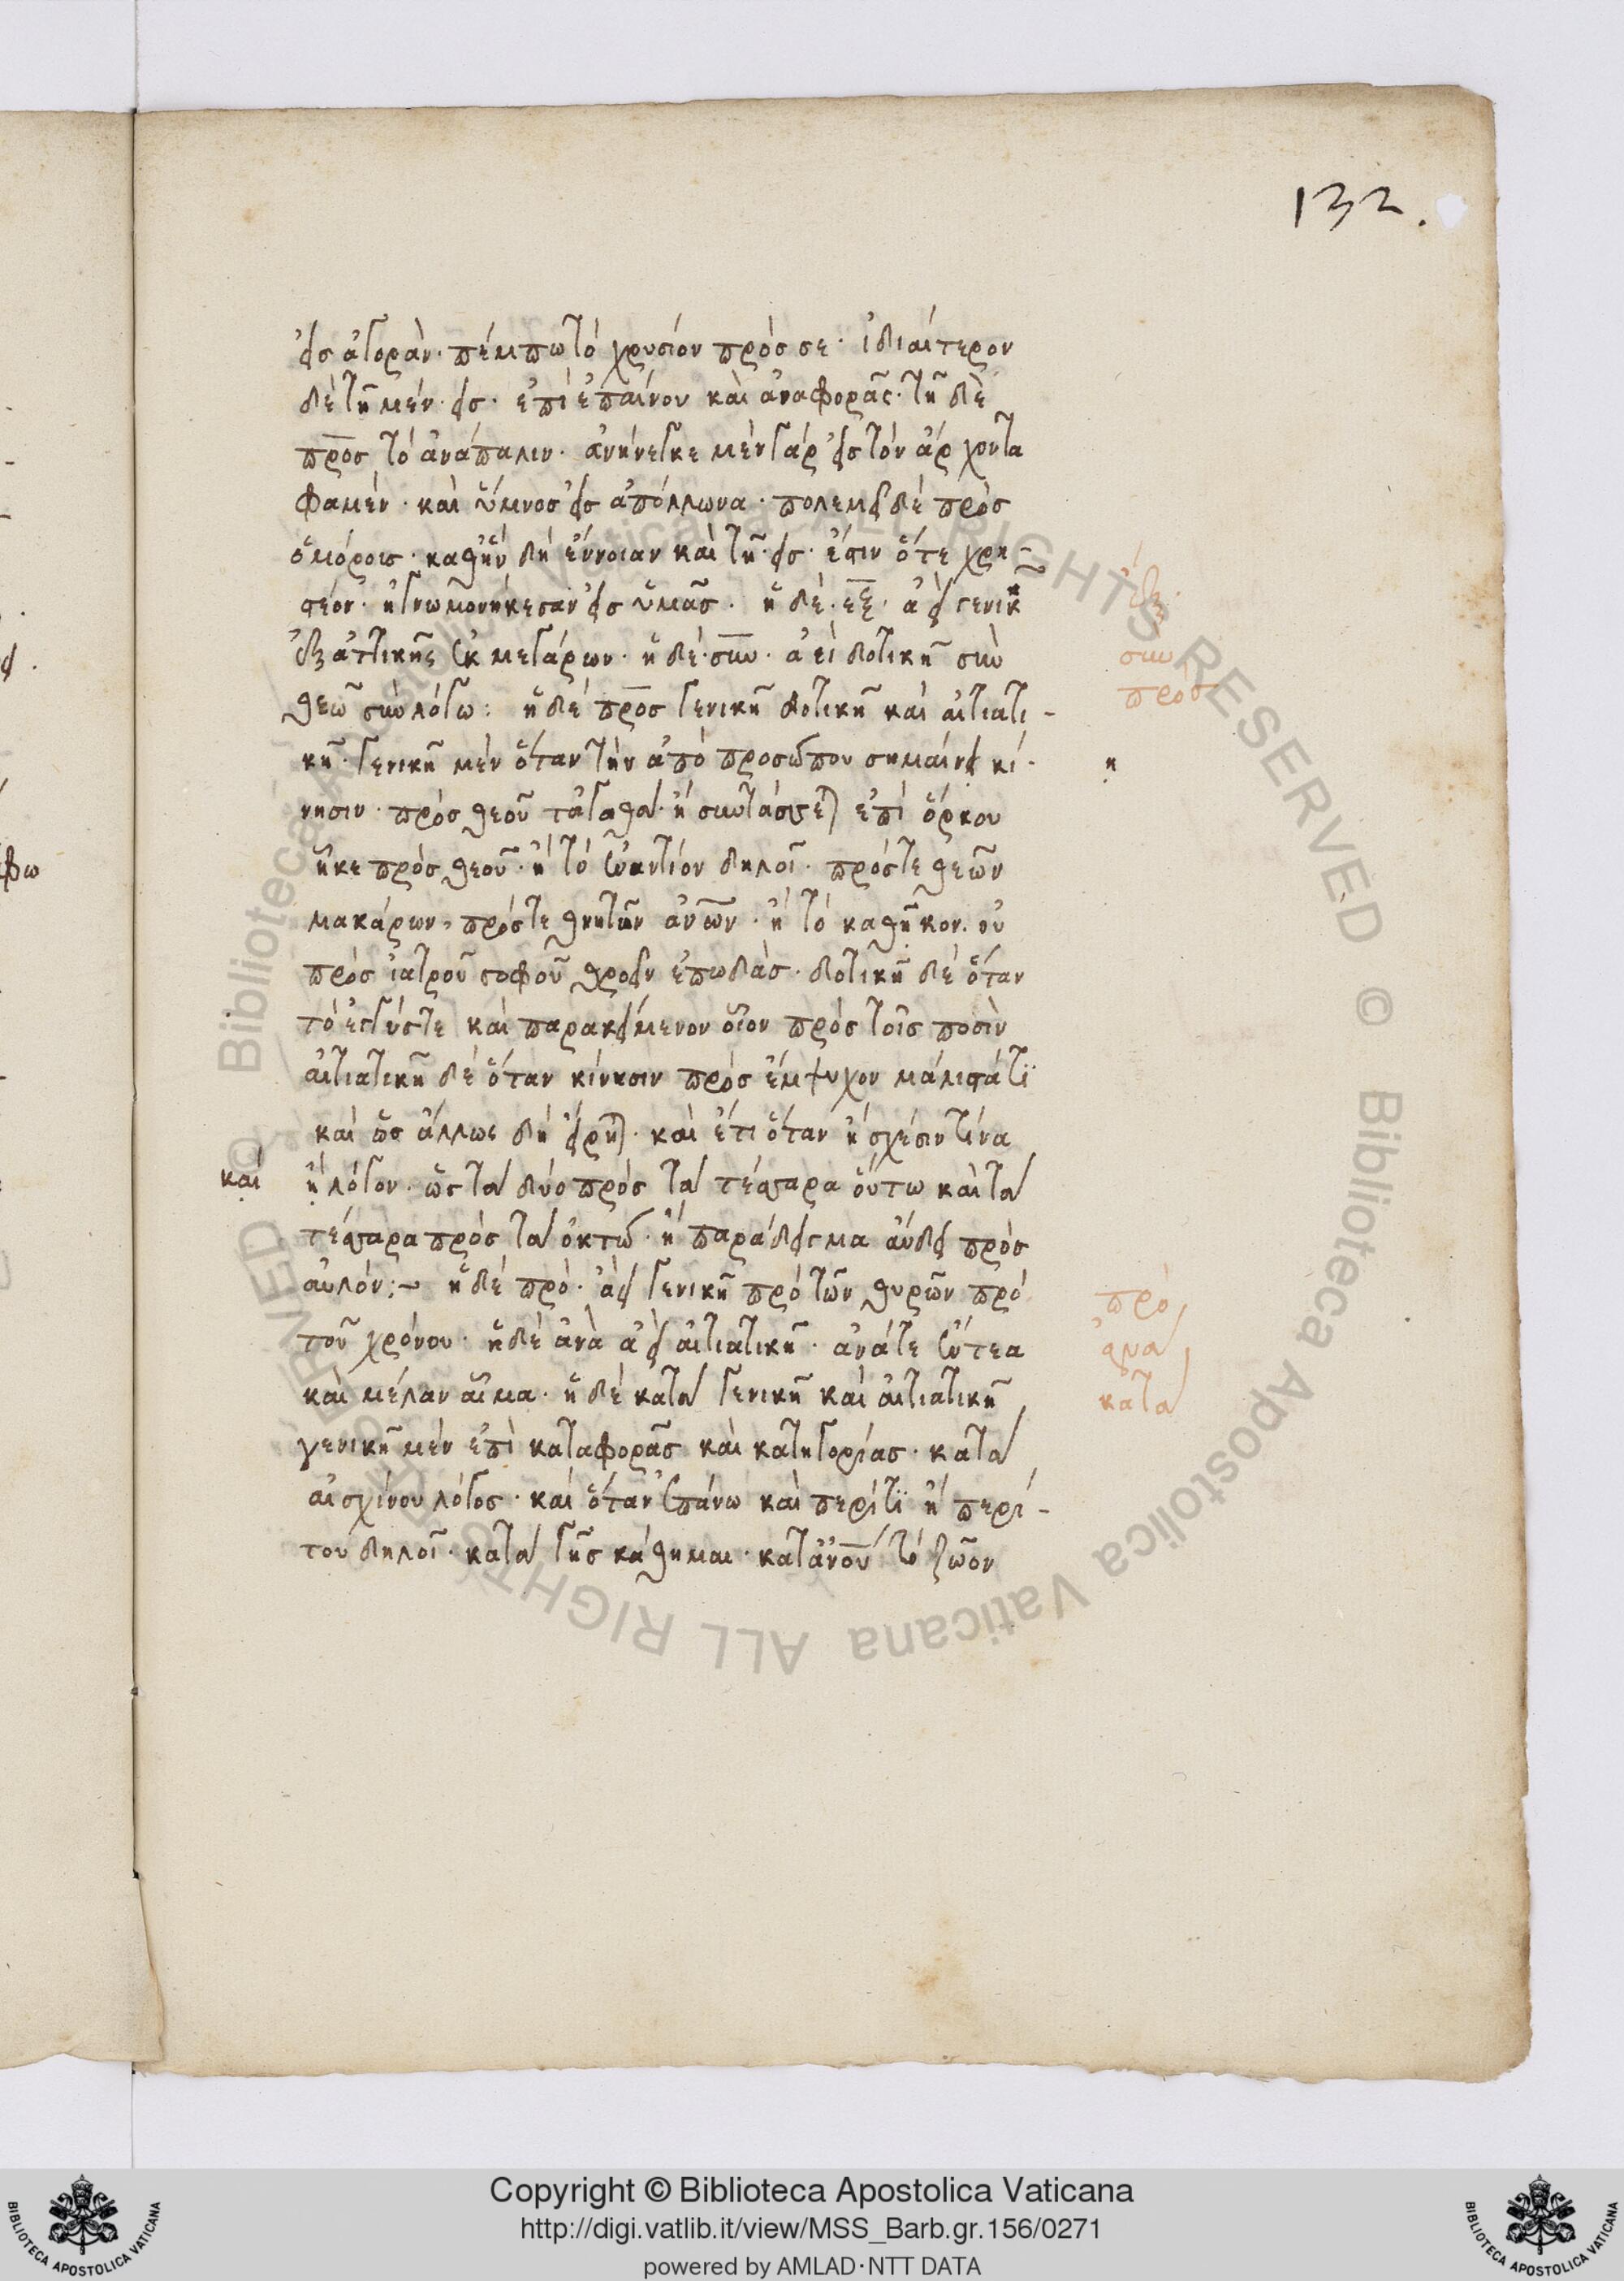 132.
εἰς ἀγοράν· πέμπω τὸ χρυσίον πρὸς σε· ἰδιαίτερον
δὲ τῆ μέν· εἰς· ἐπὶ ἐπαίνου καὶ ἀναφορᾶς· τῆ δὲ
πρὸς τὸ ἀνάπαλιν· ἀνήνεγκε μὲν γὰρ εἰς τὸν ἄρχοντα
φαμέν· καὶ ὕμνος εἰς ἀπόλλωνα· πολεμεῖ δὲ πρὸς
ὁμόρους· καθ' ἣν δὴ ἔννοιαν καὶ τῆ· εἰς· ἔστιν ὅτε χρη-
στέον· ἠγνωμονήκεσαν εἰς ὑμᾶς· ἡ δὲ· ἐξ· ἀεὶ γενικῆ
ἐξ ἀττικῆς ἐκ μεγάρων· ἡ δὲ· σὺν· ἀεὶ δοτικῆ σὺν
θεῶ σὺν λόγω: ἡ δὲ πρὸς γενικῆ δοτικῆ καὶ αἰτιατι-
κῆ· γενικῆ μὲν ὅταν τὴν ἀπὸ προσώπου σημαίνει κί-
νησιν· πρὸς θεοῦ τἀγαθά· ἢ συντάσσεται ἐπὶ ὅρκου
ἧκε πρὸς θεοῦ· ἢ τὸ ἐναντίον δηλοῖ· πρός τε θεῶν
μακάρων, πρός τε θνητῶν ἀνων· ἢ τὸ καθῆκον· οὐ
πρὸς ἰατροῦ σοφοῦ θροεῖν ἐπωδάς· δοτικῆ δὲ ὅταν
τὸ ἐγγύς τε καὶ παρακείμενον οἷον πρὸς τοῖς ποσὶν
αἰτιατικῆ δὲ ὅταν κίνησιν πρὸς ἔμψυχον μάλιστά τι
καὶ ὡς ἄλλως δὴ εἴρηται· καὶ ἔτι ὅταν ἢ σχέσιν τινα
καὶ
ἢ λόγον· ὡς τὰ δύο πρὸς τὰ τέσσαρα οὕτω καὶ τὰ
τέσσαρα πρὸς τὰ ὀκτώ· ἢ παράδειγμα ἄυδει πρὸς
αὐλόν:~ ἡ δὲ πρό· ἀεὶ γενικῆ πρὸ τῶν θυρῶν πρὸ
τοῦ χρόνου· ἡ δὲ ἀνὰ ἀεὶ αἰτιατικῆ· ἀνά τε ἔντεα
καὶ μέλαν αἷμα· ἡ δὲ κατὰ γενικῆ καὶ αἰτιατικῆ
γενικῆ μὲν ἐπὶ καταφορᾶς καὶ κατηγορίας· κατὰ
αἰσχίνου λόγος· καὶ ὅταν ἐπάνω καὶ περί τι ἢ περί-
του δηλοῖ· κατὰ γῆς κάθημαι· κατ' ἀνου τὸ ζῶον
ἐξ·
σὺν
πρὸς
η
πρὸ
ἀνὰ
κατὰ
Copyright © Biblioteca Apostolica Vaticana
http://digi.vatlib.it/view/MSS_Barb.gr.156/0271
powered by AMLAD·NTT DATA